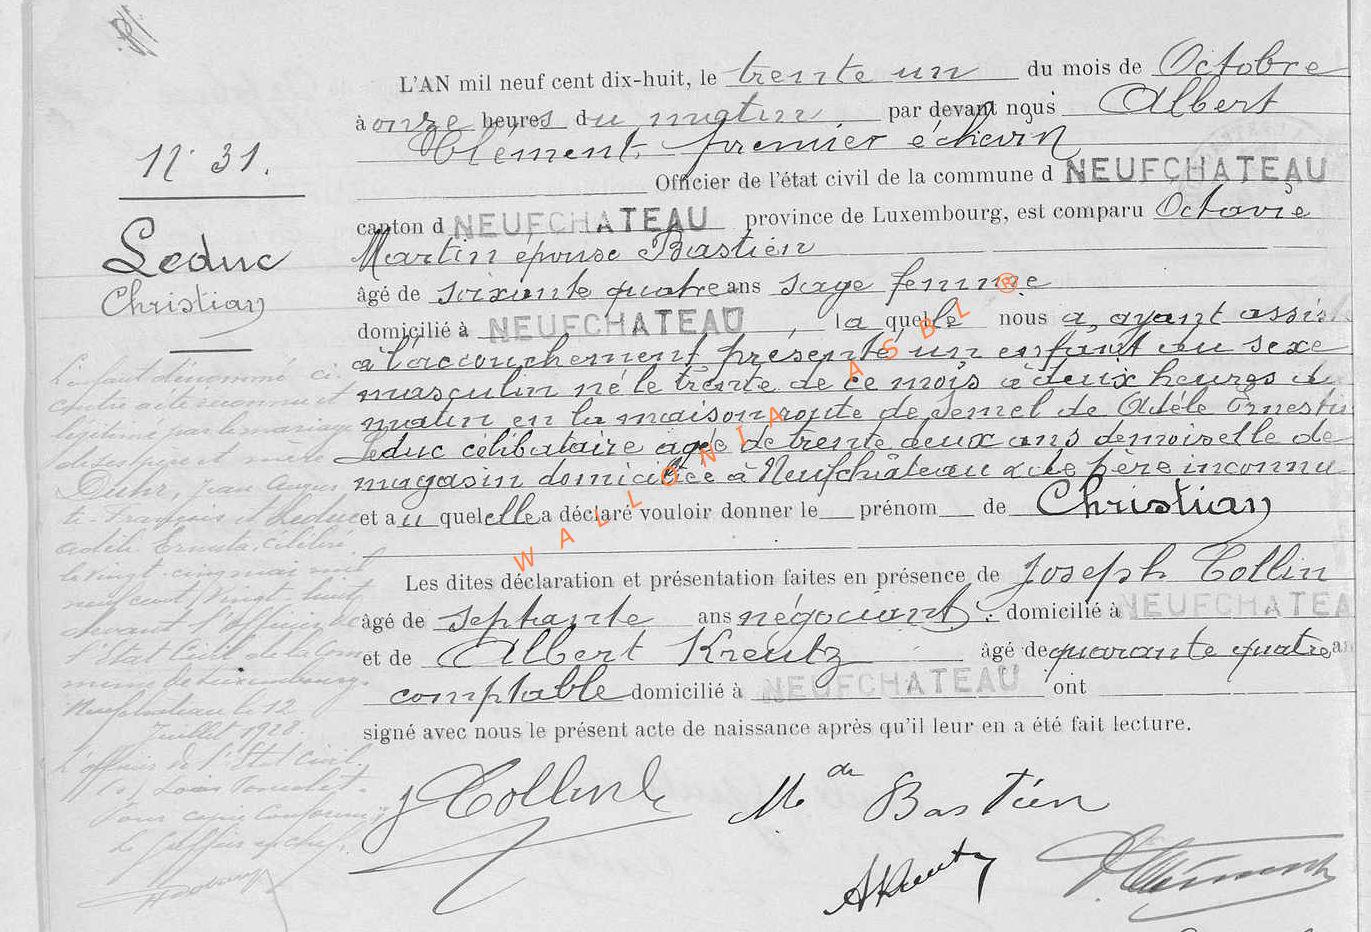 L'AN mil neuf cent dix-huit, le trente un du mois de Octobre
à onze heures du matin par devant nous Albert
Clément, premier échevin
N° 31.
Officier de l'état civil de la commune d NEUFCHATEAU
canton d NEUFCHATEAU province de Luxembourg, est comparu Octavie
Leduc
Martin épouse Bastien
Christian
âgé de soixante quatre ans sage femme
domicilié à NEUFCHATEAU, laquelle nous a, ayant assisté
à l'accouchement présenté un enfant du sexe
masculin né le trente de ce mois à deux heures du
matin en la maison route de Semel de Adèle Ernestin
Leduc célibataire âgée de trente deux ans demoiselle de
magasin domiciliée à Neufchâteau et de père inconnu
et auquel elle a déclaré vouloir donner le prénom de Christian
Les dites déclaration et présentation faites en présence de Joseph Collin
âgé de septante ans négociant domicilié à NEUFCHATEA
et de Albert Kreutz âgé de quarante quatre a
comptable domicilié à NEUFCHATEAU ont
signé avec nous le présent acte de naissance après qu'il leur en a été fait lecture.
L'enfant dénommé ci
contre a été reconnu et
légitimé par le mariage
de ses père et mère
Duhr, Jean
François et Leduc
Adèle Ernesta, célébré
le vingt-cinq mai mil
neuf cent vingt huit
devant l'officier de
l'Etat Civil de la Com
mune de Luxembourg.
Neufchâteau le 12
Juillet 1928.
L'officier de l'Etat Civil.
Pour copie conforme;
Le Greffier en chef,
J Collin
Mde Bastien
AKreutz
A. Clément
WALLONIA ASBL ®